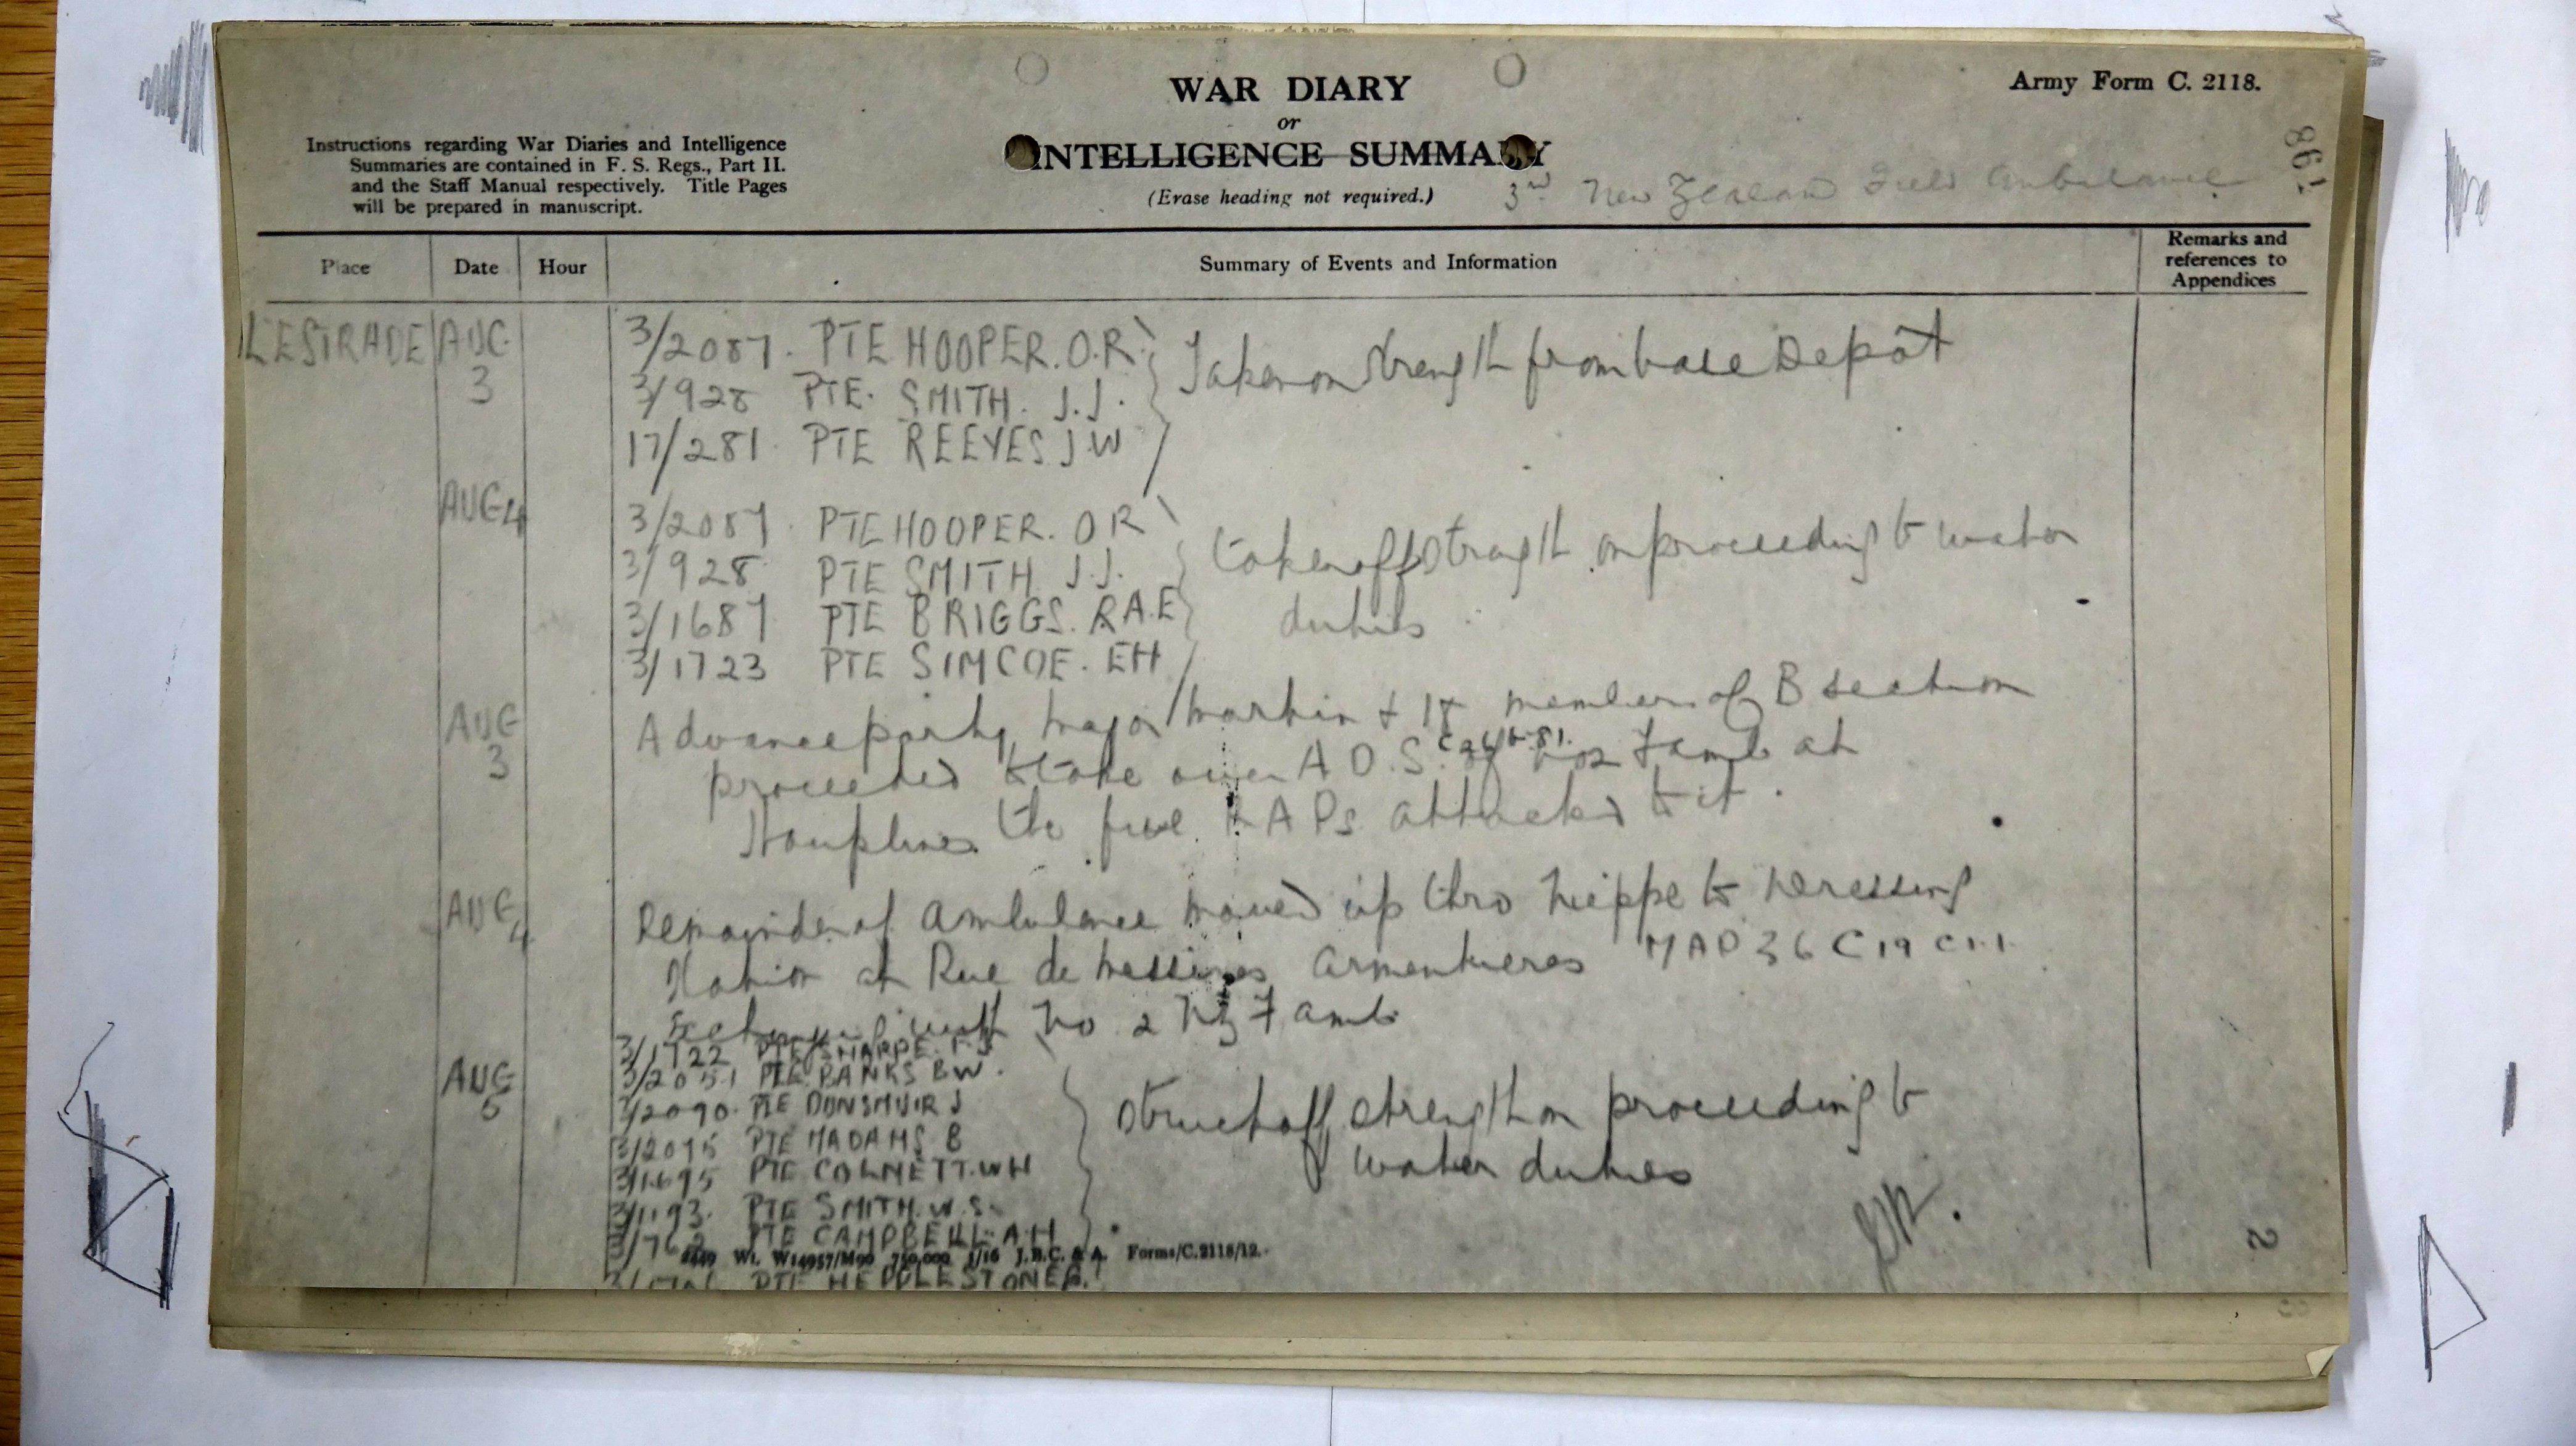 WAR DIARY
or
INTELLIGENCE SUMMARY
(Erase heading not required.)
Army Form C. 2118.
Instructions regarding War Diaries and Intelligence
Summaries are contained in F. S. Regs., Part II.
and the Staff Manual respectively. Title Pages
will be prepared in manuscript.
3rd New Zealand Field Ambulance
198
Place Date Hour Summary of Events and Information Remarks and references to Appendices
L'ESTRADE AUG 3 3/2087. PTE HOOPER. O.R.
3/928 PTE. SMITH. J.J.
17/281. PTE REEVES J.W
Taken on strength from base Depôt
AUG 4 3/2087. PTE HOOPER. O R
3/928 PTE SMITH J.J.
3/1687 PTE BRIGGS. R A.E
3/1723 PTE SIMCOE. EH
taken off strength on proceeding to water
duties
AUG 3 Advance party Major Martin + 18 members of B section
proceeded to take over A D.S. of No 2 F amb at
Houplines the five RAPs attached to it.
AUG 4 Remainder of Ambulance moved up thro Nieppe to Dressing
Station at Rue de Messines Armentieres MAP 36 C 19 C 1.1.
with No 2 NZ F amb
AUG 5 3/1722 PTE SHARPE. F J
3/2051 PTE BANKS BW.
3/2090. PTE DUNSMUIR J
3/2095 PTE MADAMS B
3/1695 PTE COLNETT. WH
3/1193. PTE SMITH. W. S.
3/762 PTE CAMPBELL. A.H
PTE HEPPLESTONE
Struck off strength on proceeding to
water duties
2449 Wt. W14957/M90 750,000 1/16 J.B.C. & A. Forms/C.2118/12.
2